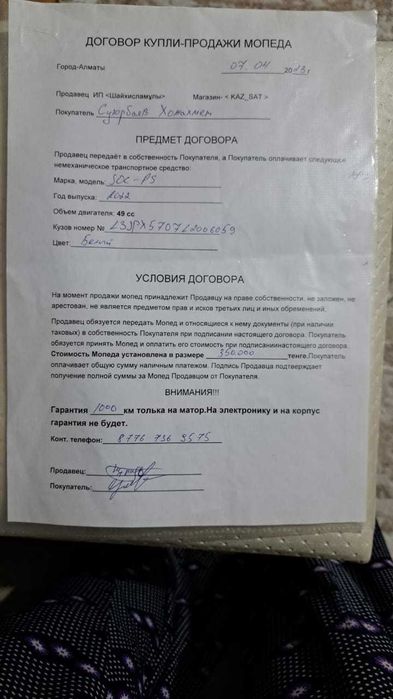 ДОГОВОР КУПЛИ-ПРОДАЖИ МОПЕДА
Город-Алматы 07. 04 2023 г
Продавец ИП <Шайхисламулы> Магазин- < KAZ_SAT >
Покупатель
ПРЕДМЕТ ДОГОВОРА
Продавец передаёт в собственность Покупателя, а Покупатель оплачивает следующее
немеханическое транспортное средство:
Марка, модель:
Год выпуска: 2022
Объем двигателя: 49 сс
Кузов номер № L3JPX5707L2006059
Цвет: Белый
УСЛОВИЯ ДОГОВОРА
На момент продажи мопед принадлежит Продавцу на праве собственности, не заложен, не
арестован, не является предметом прав и исков третьих лиц и иных обременений.
Продавец обязуется передать Мопед и относящиеся к нему документы (при наличии
таковых) в собственность Покупателя при подписании настоящего договора. Покупатель
обязуется принять Мопед и оплатить его стоимость при подписаниинастоящего договора.
Стоимость Мопеда установлена в размере 350.000 тенге.Покупатель
оплачивает общую сумму наличным платежом. Подпись Продавца подтверждает
получение полной суммы за Мопед Продавцом от Покупателя.
ВНИМАНИЯ!!!
Гарантия 1000 км толька на матор.На электронику и на корпус
гарантия не будет.
Конт. телефон: 8776 736 3575
Продавец:
Покупатель: